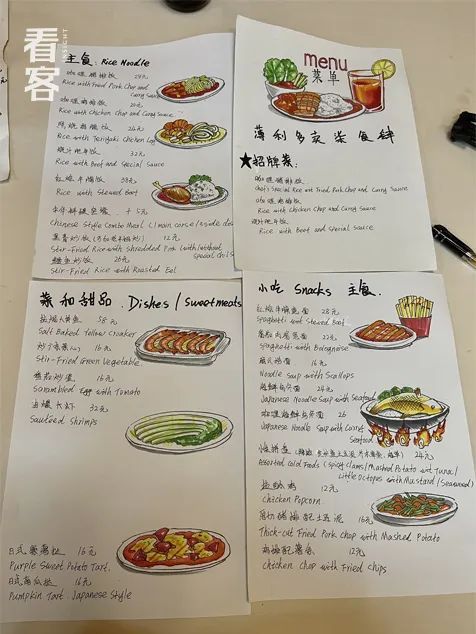 看客
INSIGHT
主食: Rice Noodle
咖喱猪排饭 28元
Rice with Fried Pork Chop and Curry Sauce
咖喱鸡排饭
Rice with Chicken Chop and Curry Sauce
照烧鸡腿饭 26元
Rice with Teriyaki Chicken Leg
32元
Rice with Beef and Special Sauce
红烧牛腩饭 38元
Rice with Stewed Beef
Chinese Style Combo Meal (1 main corse/side
12元
Stir-Fried Rice with Shredded Pork (with/without special
鳗鱼炒饭 26元
Stir-Fried Rice with Roasted Eel
menu
菜单
薄利多卖
★招牌菜:
咖喱猪排饭
Chef's Special Rice wit Fried Pork Chop and Curry Sauce
咖喱鸡排饭
Rice with Chicken Chop and Curry Sauce
Rice with Beef and Special Sauce
菜和甜品. Dishes/sweetmeats
盐焗大黄鱼 58元
Salt Baked Yellow Croaker
16元
Stir-Fried Green Vegetable
番茄炒蛋 16元
Scrambled Egg with Tomato
油爆大虾 32元
Sauteed Shrimps
日式紫薯挞 16元
Purple Sweet Potato Tart.
日式南瓜挞 16元
Pumpkin Tart Japanese Style
小吃 Snacks 主食.
28元
spaghetti wit Stewed Beef
spaghetti with Bolognese
16元
Noodle Soup with Scallops
海鲜乌冬面 24元
Japanese Noodle Soup with Seafood
咖喱海鲜乌冬面 26
Japanese Noodle Soup with Curry Seafood
24元
Assorted Cold Foods (Spicy Clams/Mashed Potato wit Tuna/
Little Octopus with Mustard/Seaweed)
12元
Chicken Popcorn
厚切猪排配土豆泥 16元
Thick-cut Fried Pork Chop with Mashed Potato
鸡排配薯条 12元
Chicken Chop with Fried Chips